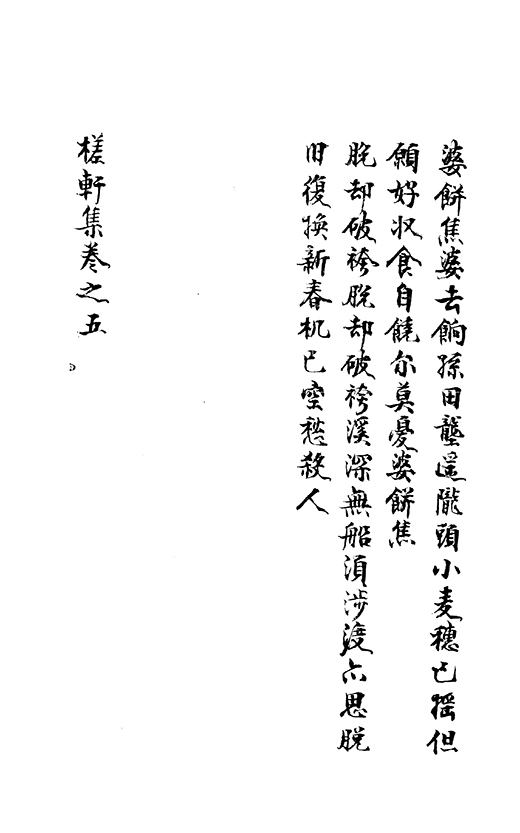 婆餅焦婆去餉孫田壟邊隴頭小麦穗已搖但
願好収食自饒尔莫憂婆餅焦
脫却破袴脫却破袴溪深無船須涉渡不思脫
旧復換新春机已空愁殺人
槎軒集卷之五